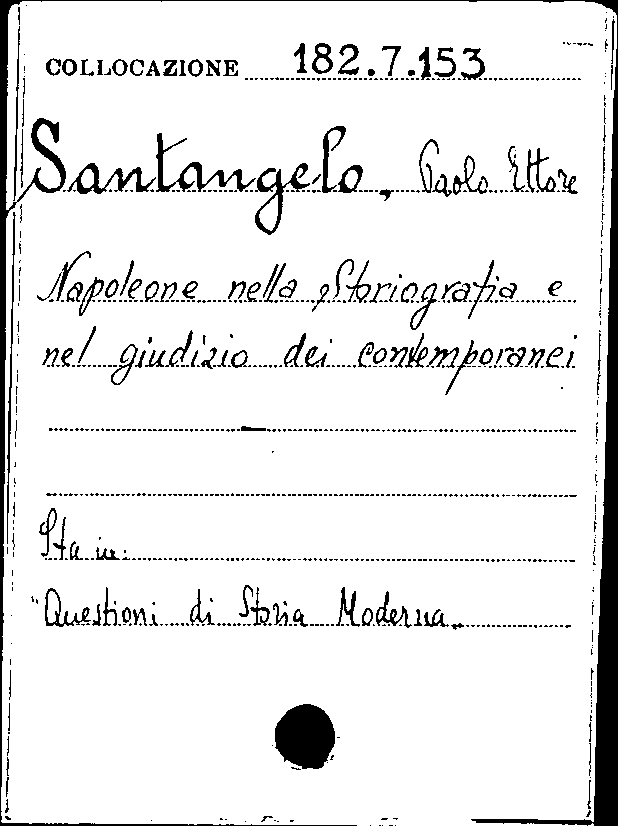 COLLOCAZIONE 182.7.153
Santangelo, Paolo Ettore
Napoleone nella Storiografia e
nel giudizio dei contemporanei
Sta in:
"Questioni di Storia Moderna"